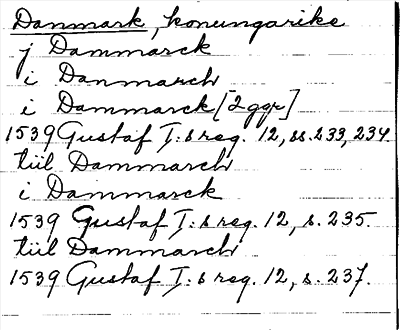 Danmark, konungarike
j Dammarck
i Danmarch
i Dammarck [2 ggr]
1539 Gustaf I:s reg. 12, ss. 233, 234.
tiil Dammarch
i Dammarck
1539 Gustaf I:s reg. 12, s. 235.
tiil Dammarch
1539 Gustaf I:s reg. 12, s. 237.